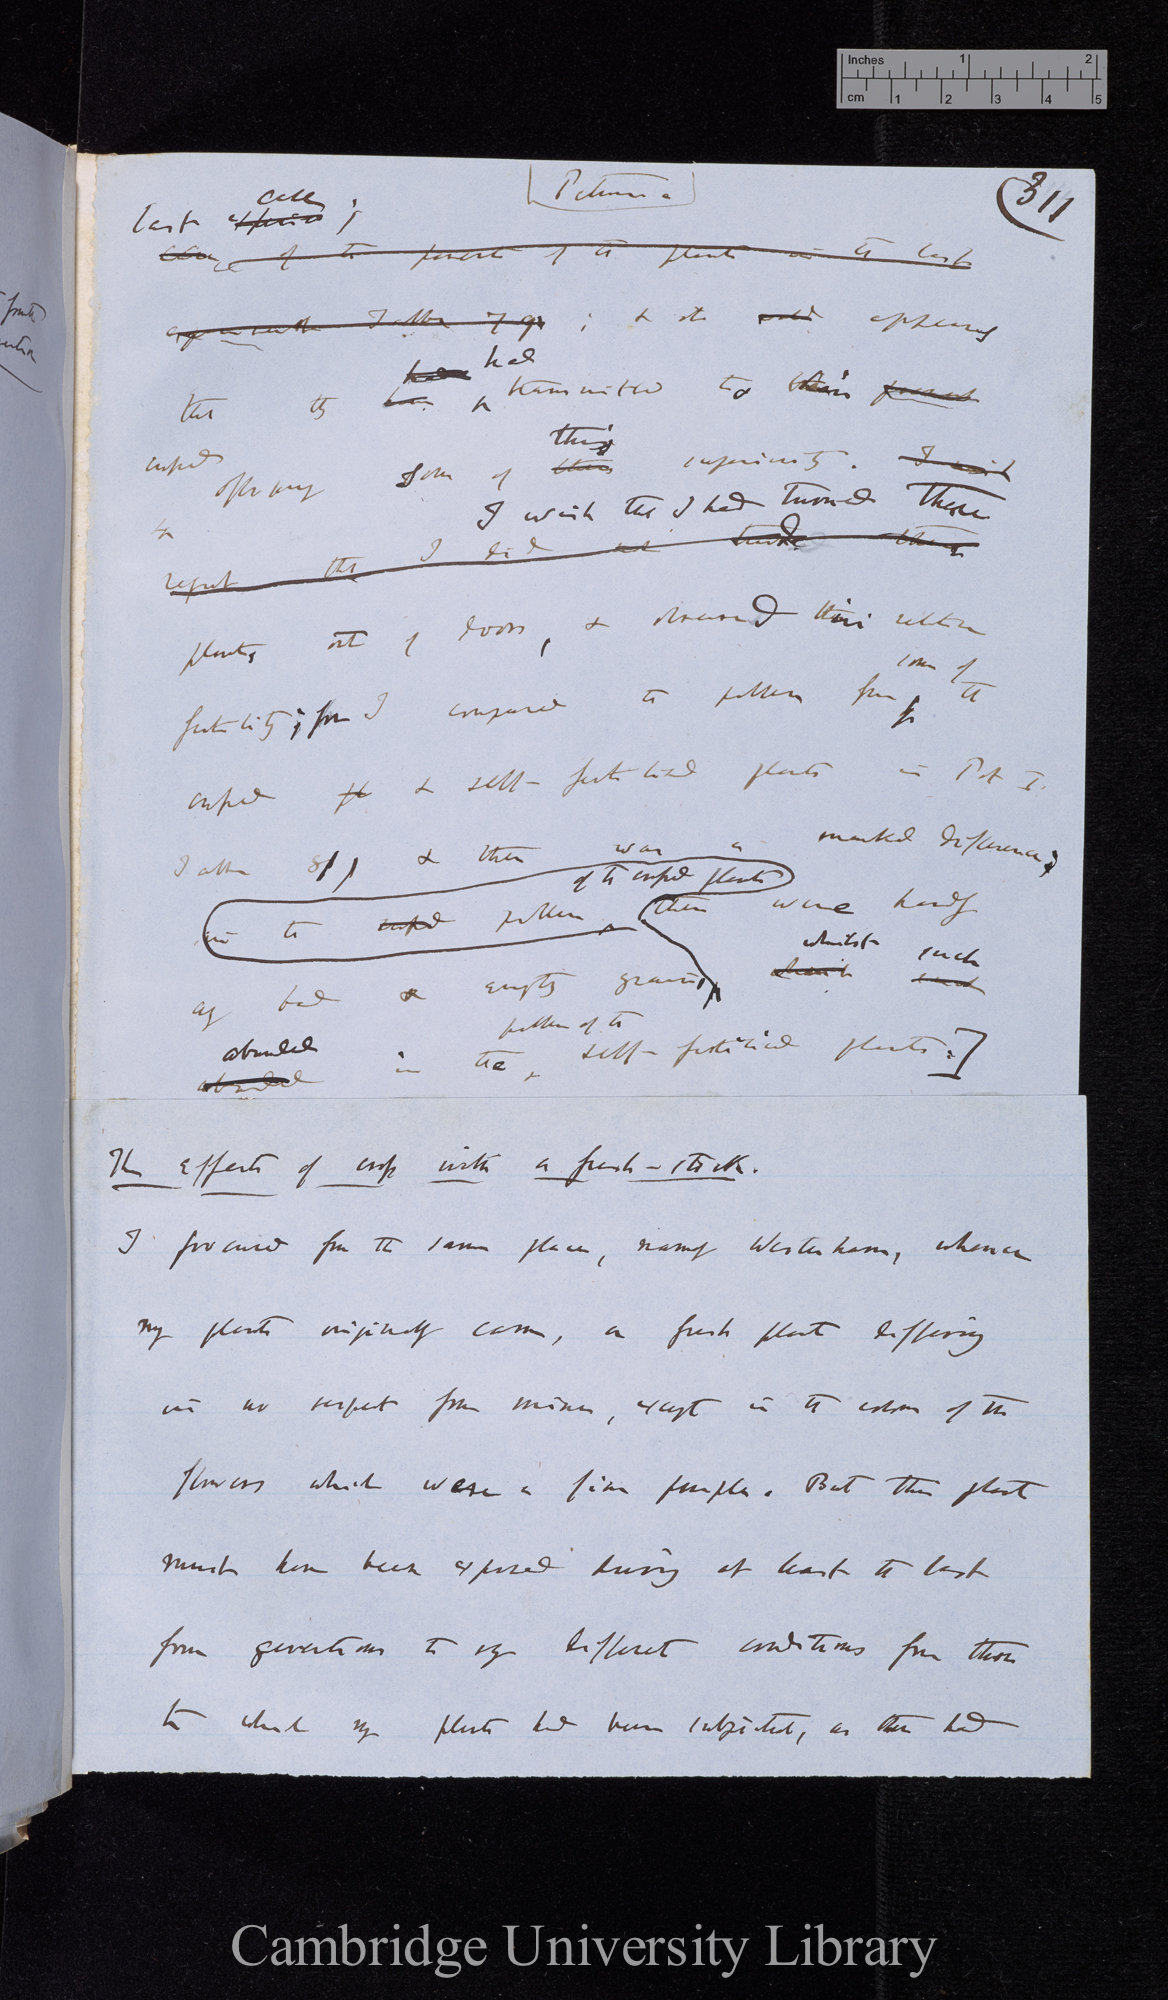 Inches 1 2
cm 1 2 3 4 5
Petunia
311
case
last ;
of the parents of the plants in the last
Table ; & it appears
had
that they transmitted to their
crossed offspring some of
this
superiority.
&
I wish that I had turned these
regret that I did not
plants out of doors, & observed their relative
some of
fertility; for I compared the pollen from the
crossed & self-fertilised plants in Pot I.
Table & there was a marked difference;
of the crossed plants
in the crossed pollen there were hardly
whilst such
any bad & empty grains,
pollen of the
abounded
in the self-fertilised plants.]
The effects of cross with a fresh-stock.
I procured from the same place, namely Westerham, whence
my plants originally came, a fresh plant differing
in no respect from mine, except in the colour of the
flowers which were a fine purple. But this plant
must have been exposed during at least the last
four generations to very different conditions from those
to which my plants had been subjected, as these had
Cambridge University Library